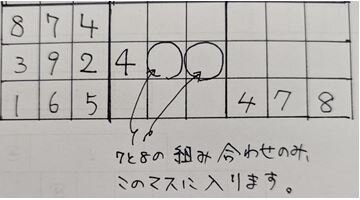 8 7 4
3 9 2 4
1 6 5 4 7 8
7と8の組み合わせのみ、
このマスに入ります。